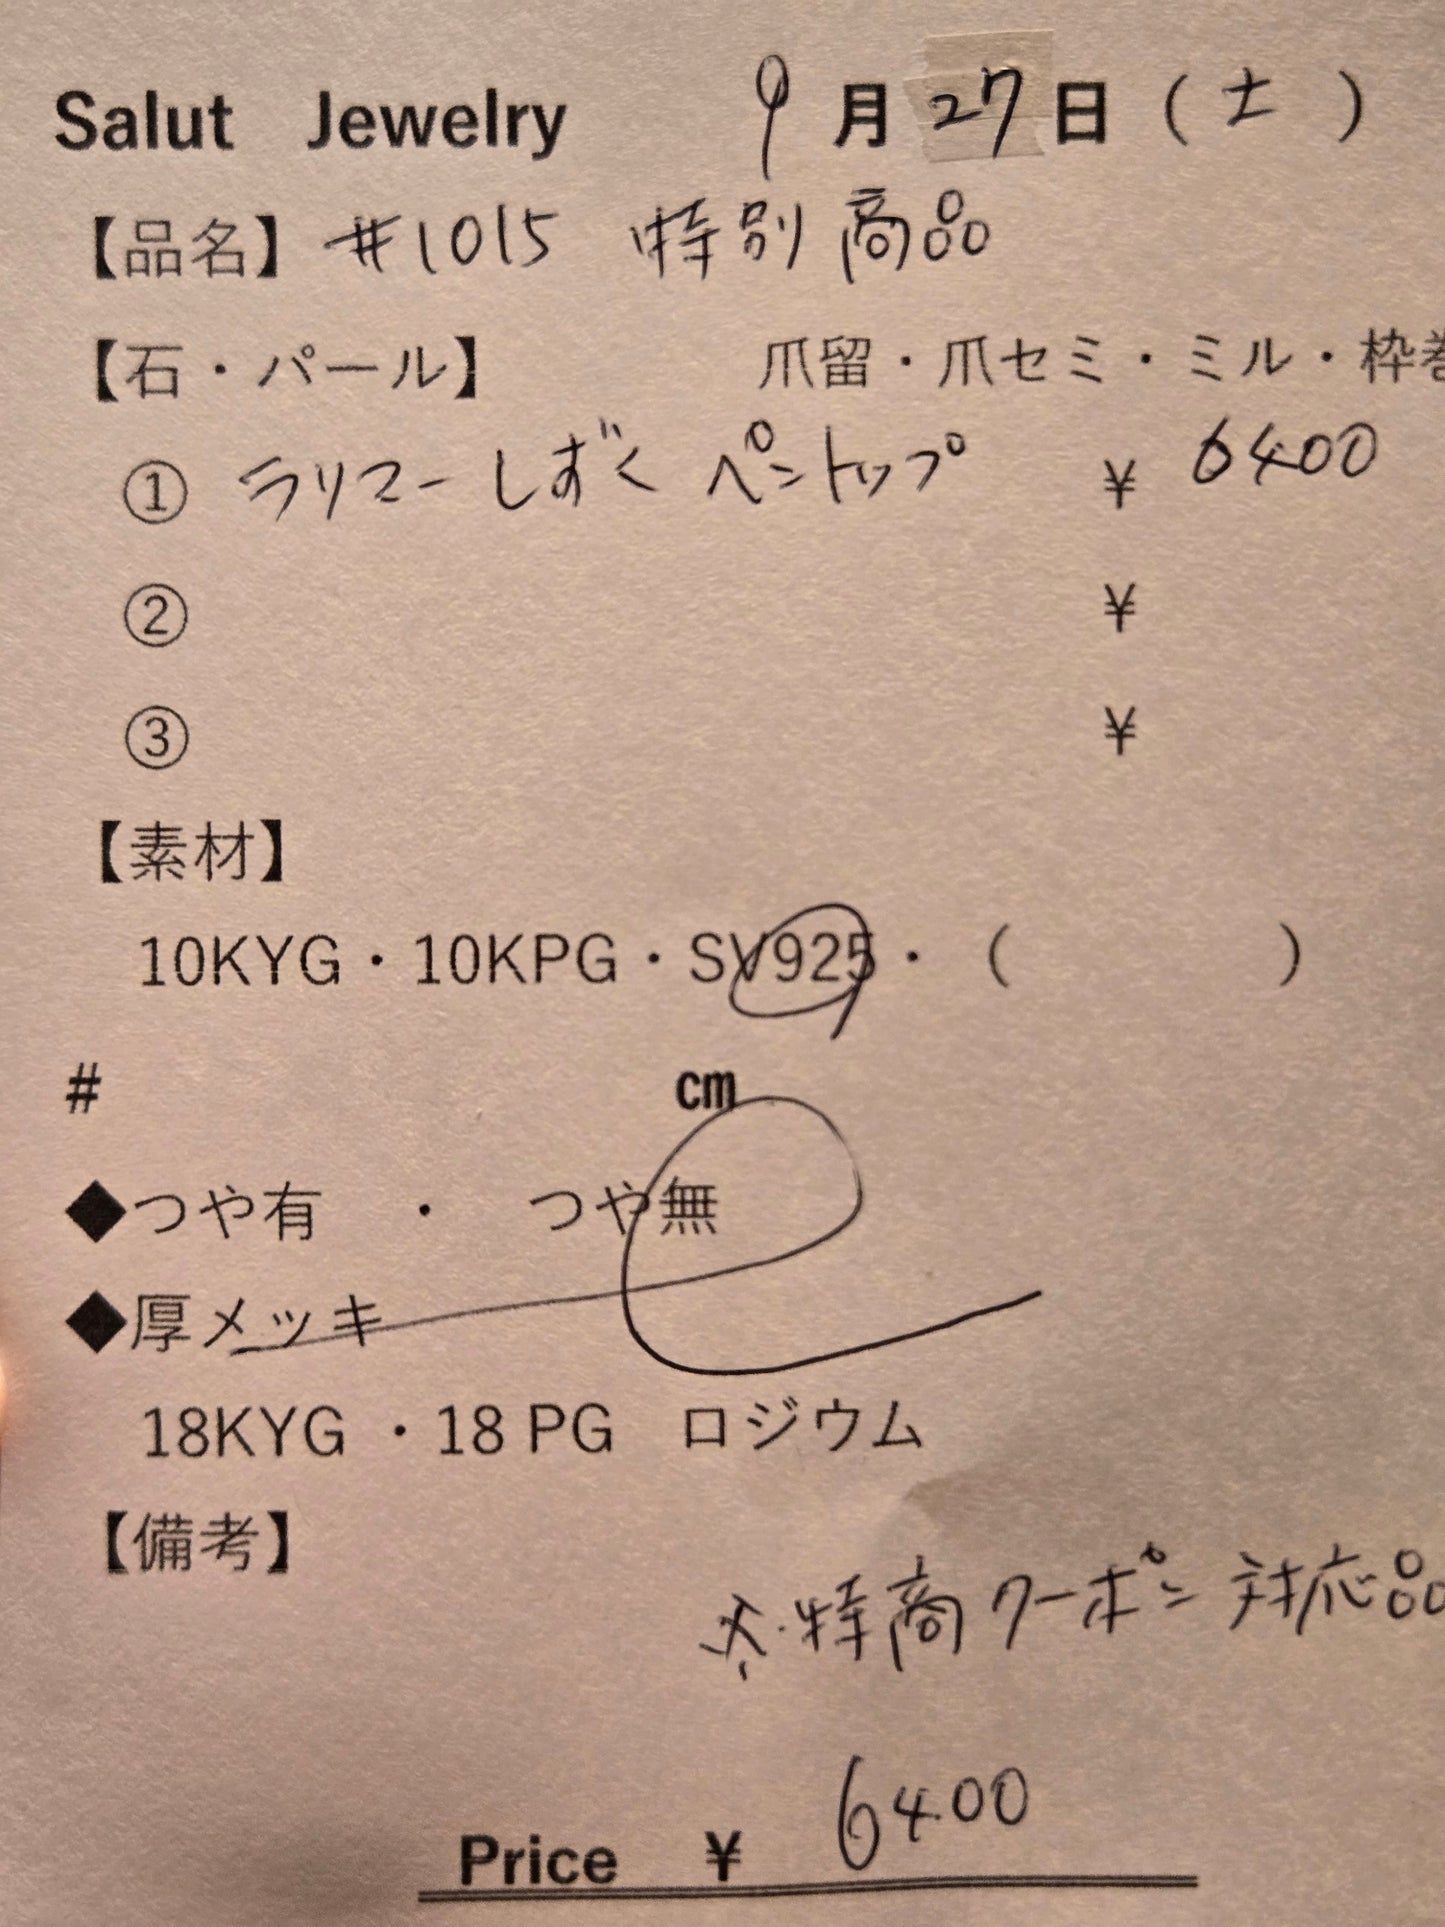 Salut Jewelry 9月27日(土)
【品名】#1015 特別商品
【石・パール】 爪留・爪セミ・ミル・枠巻
① ラリマーしずくペントップ ¥6400
② ¥
③ ¥
【素材】
10KYG・10KPG・SV925・( )
# cm
◆つや有 ・ つや無
◆厚メッキ
18KYG ・18 PG ロジウム
【備考】
※特商クーポン対応品
Price ¥ 6400